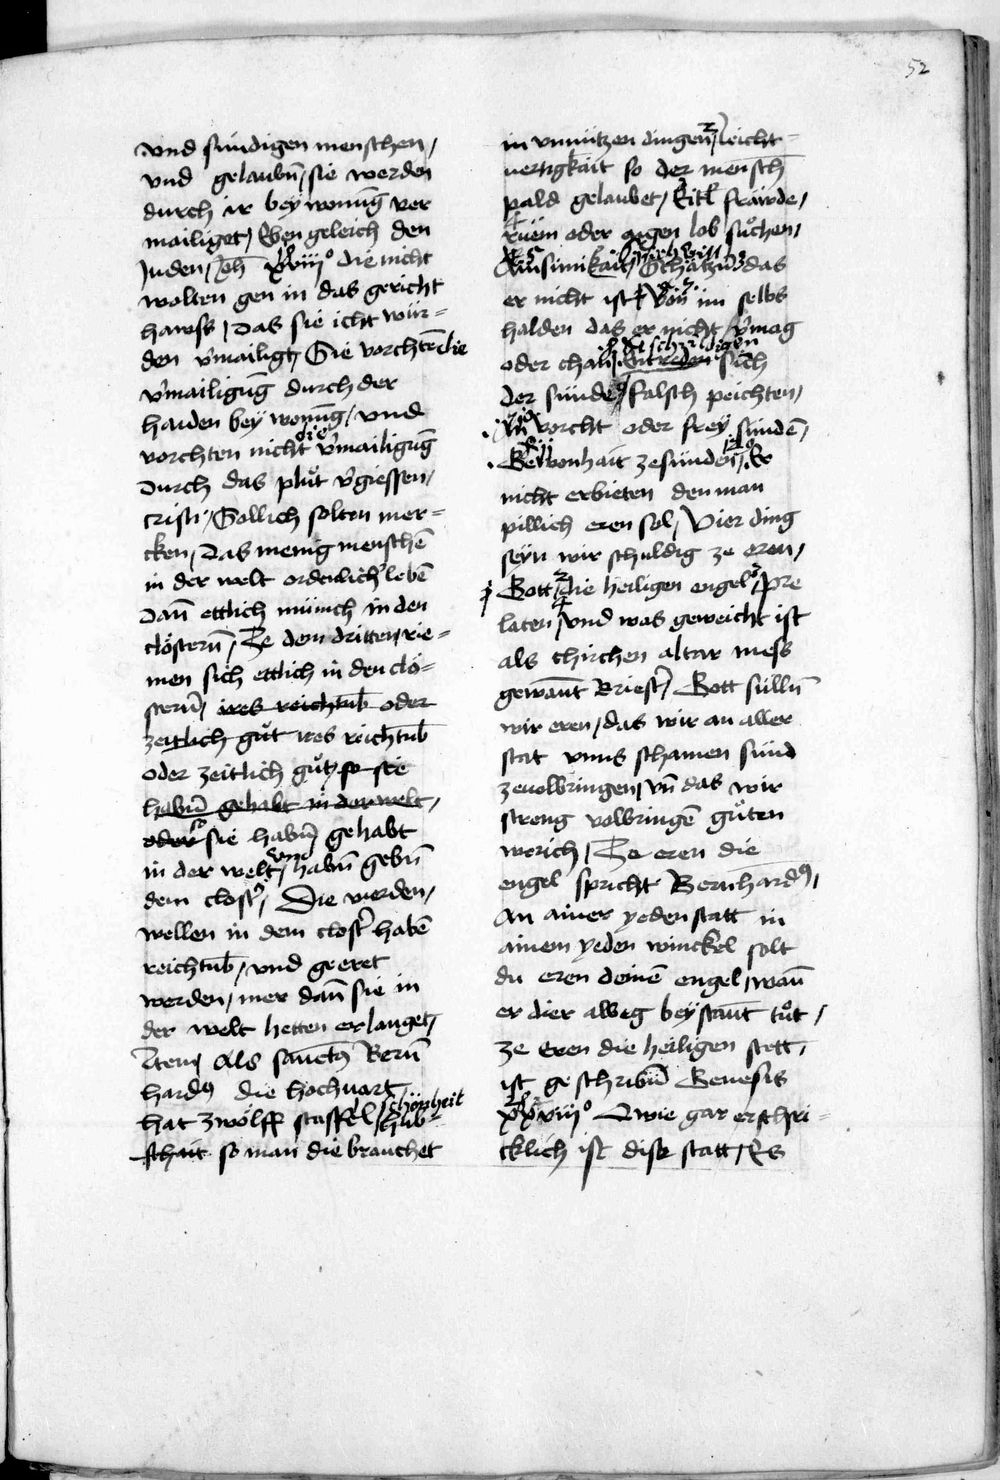 52
vnd sündigen menschen /
vnd gelaubn̄ / sie werden
durch ir bey wonūg ver
mailiget / Eben geleich den
Juden / Joh̄ xviijo die nicht
wolten gen in das gericht
hawss / Das sie icht wur=
den v̓mailigt / Sie vorchtē die
v̓mailigūg durch der
haiden bey wonūg / vnd
vorchten nicht die v̓mailigūg
Durch das plůt v̓giessen /
cristi / Sollich solten mer=
cken / Das menig menschē
in der welt ordenlich̓ lebē
Dan̄ ettlich münich in den
clöstern̄ / Ze dem dritten / rie=
men sich ettlich in den clö=
stern̄ / ires reichtūb oder
zeitlich gůt ires reichtūb
oder zeitlich gůt / so sie
habn̄ gehabt in der welt /
oder so sie habn̄ gehabt
in der welt / vnd habn̄ gebn̄
dem clost̓ / Die werden /
wellen in dem clost̓ habē
reichtūb / vnd geeret
werden / mer dan̄ sie in
der welt hetten erlanget /
Item / Als sanct9 Bern̄
hard9 die hochuart
hat zwölff staffel / schönheit hub
schait so man die brauchet
in vnnützen dingen / 2 Leicht=
uertigkait so der mensch
pald gelaubet / 3 Eitl̄ fräwde /
4 rüem oder aygen lob sůchen /
5 Ainsimikait / 6 Schätzūg das
er nicht ist / 7 von im selbs
halden das er nicht v̓mag
oder chan / 8 Entreden sich
der sünde / 9 falsch peichten /
10 An vorcht oder frey sündē /
Gewonhait ze sünden / 12 Er
nicht erbieten den man
pillich eren sol / Vier ding
seyn wir schuldig ze eren /
Gott / 2 die heiligen engel / 3 Pre
laten / 4 vnd was geweicht ist
als chirchen altar mess
gewan̄t Briest̓ / Gott sülln̄
wir eren / das wir an aller
stat vnns schamen sünd
zeuolbringen / vn̄ das wir
streng volbringē gůten
werich / Ze eren die
engel spricht Bernhard9 /
An ainer yeden statt in
ainem yeden winckel solt
du eren deinē engel / wan̄
er dier alweg beystan̄t tůt /
ze eren die heiligen stett /
ist geschribn̄ Genesis
xxviijo O wie gar erschri=
cklich ist dise statt / Es